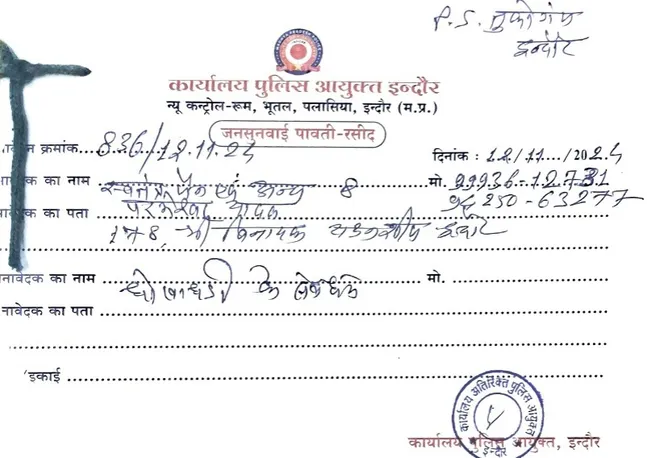 P.S. तुकोगंज
इन्दौर
कार्यालय पुलिस आयुक्त इन्दौर
न्यू कन्ट्रोल-रूम, भूतल, पलासिया, इन्दौर (म.प्र.)
जनसुनवाई पावती-रसीद
क्रमांक 836/12.11.24 दिनांक : 12/11/2024
का नाम एवं अन्य 8 मो. 99936-12731
का पता 250-63277
178, श्री विनायक इंदौर
नावेदक का नाम धोखाधडी के संबंध में मो.
नावेदक का पता
इकाई
कार्यालय अतिरिक्त पुलिस आयुक्त
इन्दौर
कार्यालय पुलिस आयुक्त, इन्दौर